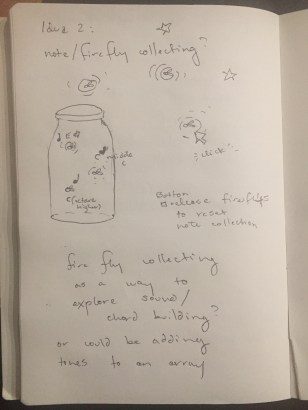 Idea 2:
note/firefly collecting?
E
C middle
C
C (octave
higher)
click
button
release fireflips
to reset
note collection
fire fly collecting
as a way to
explore sound/
chord building?
or could be adding
tones to an array